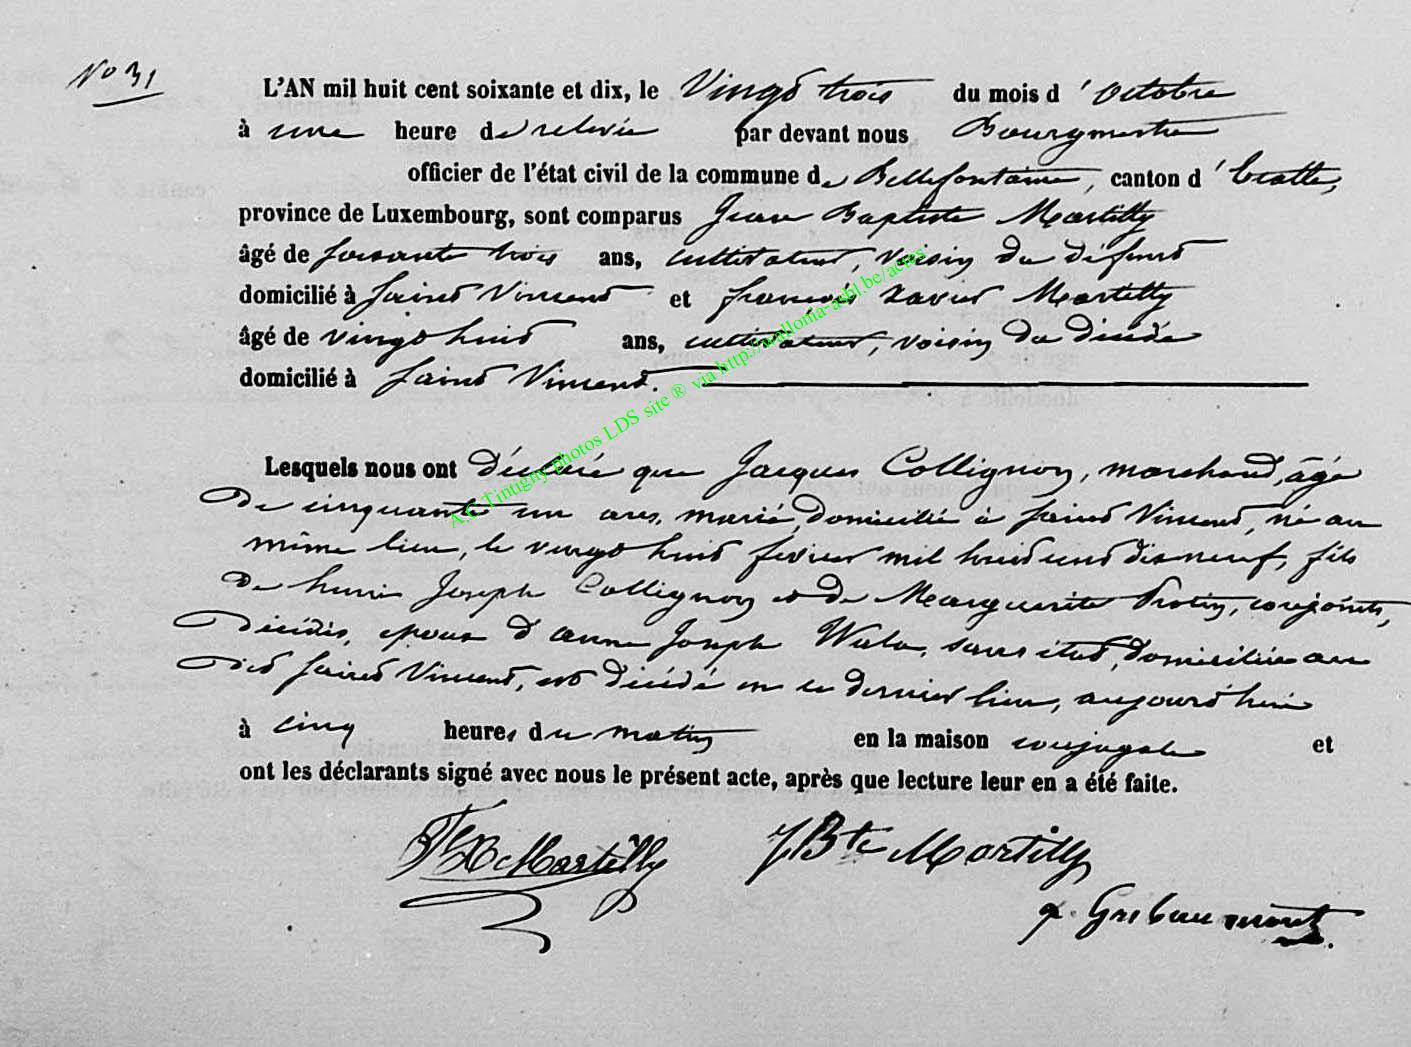 No 31
L'AN mil huit cent soixante et dix, le Vingt trois du mois d'octobre
à une heure de relevée par devant nous Bourgmestre
officier de l'état civil de la commune de Bellefontaine, canton d'Etalle,
province de Luxembourg, sont comparus Jean Baptiste Martilly
âgé de soixante trois ans, cultivateur, voisin du défunt
domicilié à Saint Vincent et françois Xavier Martilly
âgé de vingt huit ans, cultivateur, voisin du décédé
domicilié à Saint Vincent.
Lesquels nous ont déclaré que Jacques Collignon, marchand, âgé
de cinquante un ans, marié, domicilié à Saint Vincent, né au
même lieu, le vingt huit février mil huit cent dix neuf, fils
de henri Joseph Collignon et de Marguerite conjoints,
décédés, époux d'anne Joseph sans état, domiciliée au
dit Saint Vincent, est décédé en ce dernier lieu, aujourd'hui
à cinq heures du matin en la maison conjugale et
ont les déclarants signé avec nous le présent acte, après que lecture leur en a été faite.
Martilly JBte Martilly
Gribaumont
A.C Tintigny photos LDS site ® via http://wallonia-asbl.be/actes